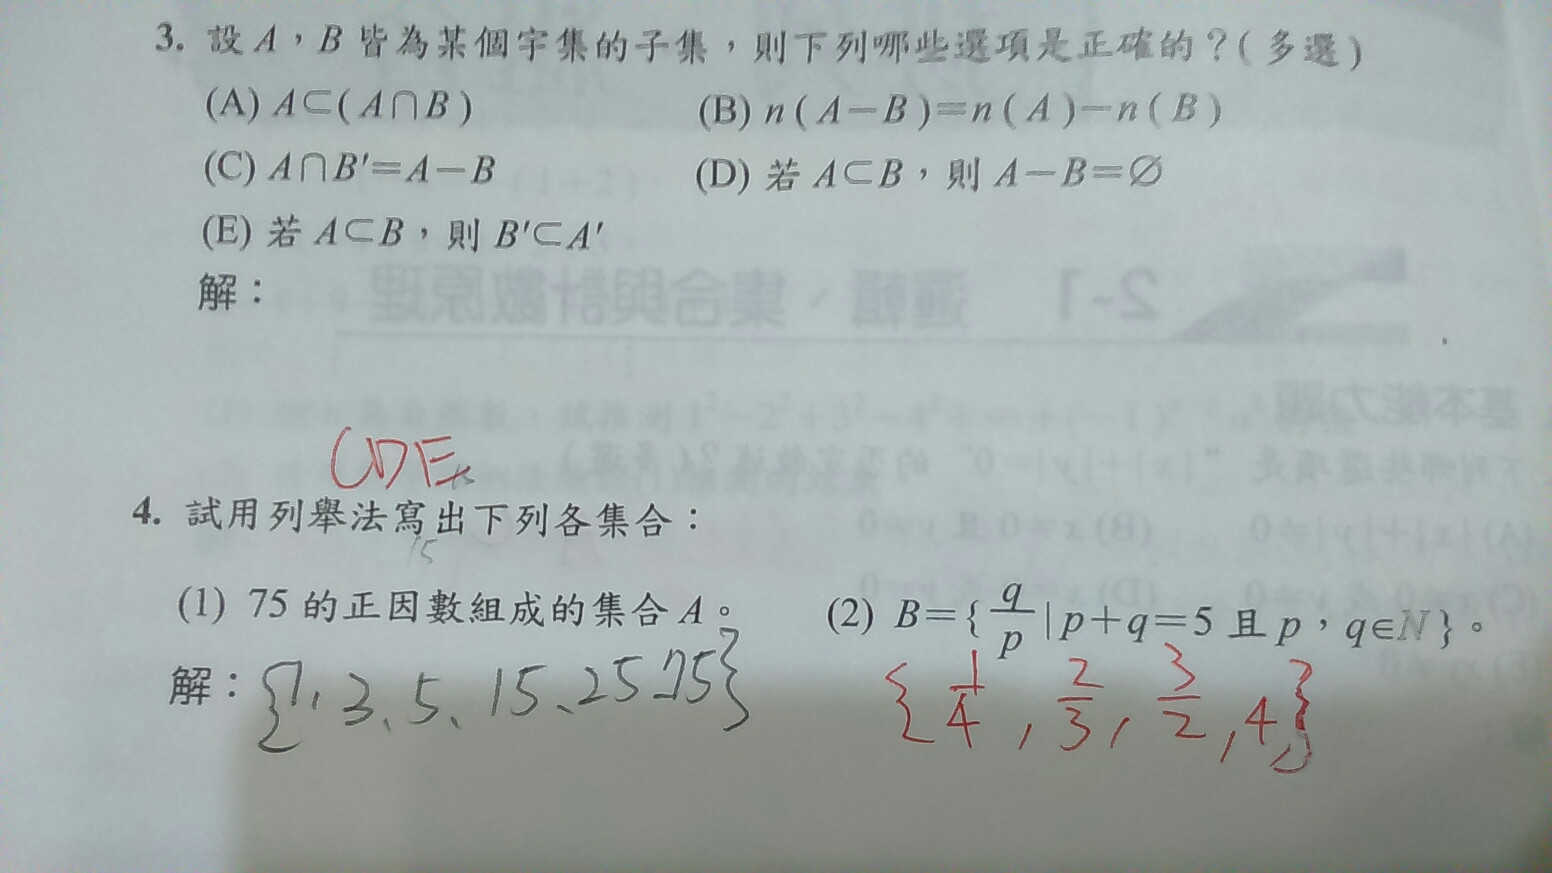 3. 設A，B皆為某個宇集的子集，則下列哪些選項是正確的？(多選)
(A) A⊂(A∩B) (B) n(A－B)＝n(A)－n(B)
(C) A∩B′＝A－B (D) 若A⊂B，則A－B＝∅
(E) 若A⊂B，則B′⊂A′
解：
2-1 邏輯、集合與計數原理
基本能力題
CDE
4. 試用列舉法寫出下列各集合：
15
(1) 75的正因數組成的集合A。 (2) B＝{q/p|p＋q＝5且p，q∈N}。
解：{1, 3、5、15、25、75} {1/4, 2/3, 3/2, 4}